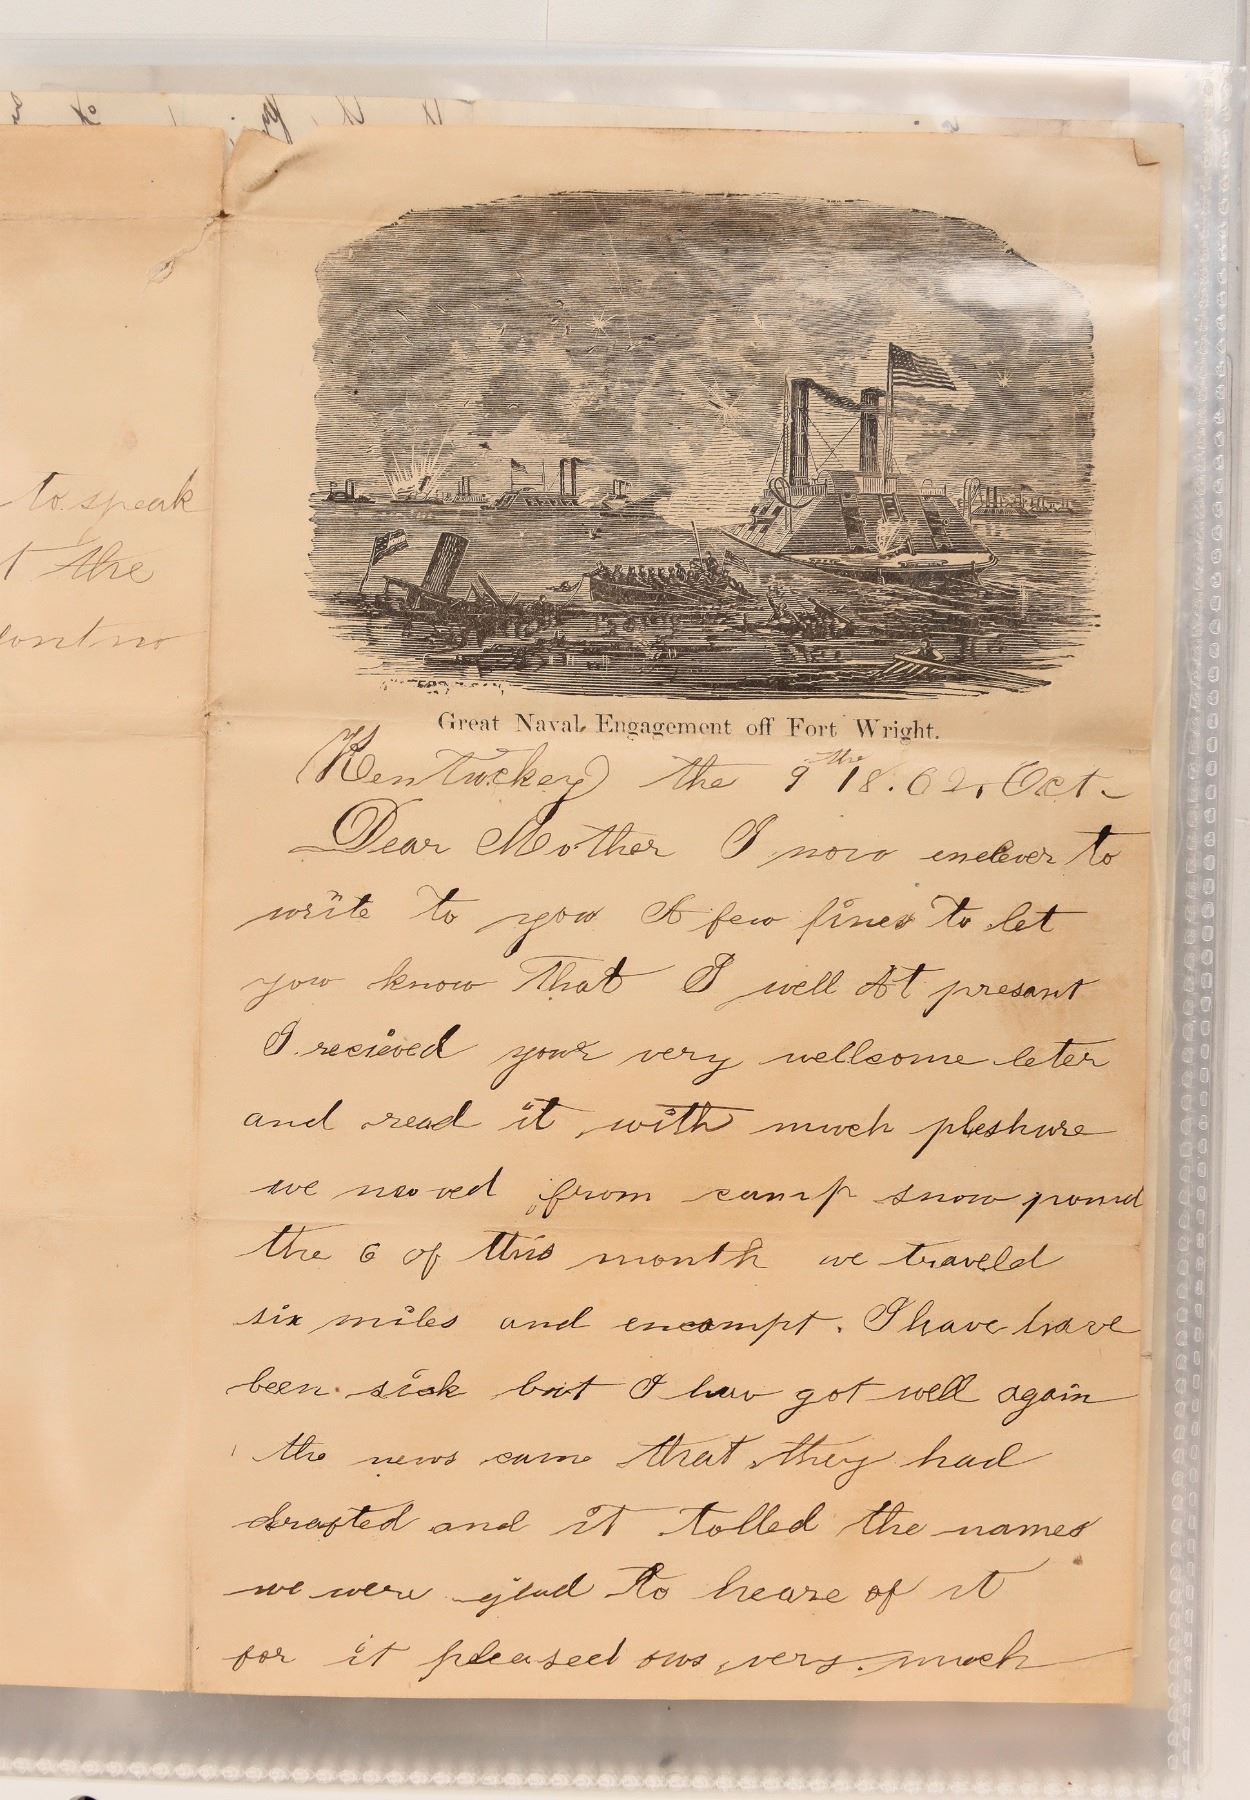 to speak
t the
Great Naval Engagement off Fort Wright.
(Kentuckey) the 9the 18.62, Oct.
Dear Mother I now endever to
write to you A few lines to let
you know that I well At presant
I recieved your very wellcome leter
and read it with much pleshure
we moved from camp snow pond
the 6 of this month we traveld
six miles and encampt. I have have
been sick but I hav got well again
the news came that they had
drafted and it tolled the names
we were glad to heare of it
for it pleased ous very much